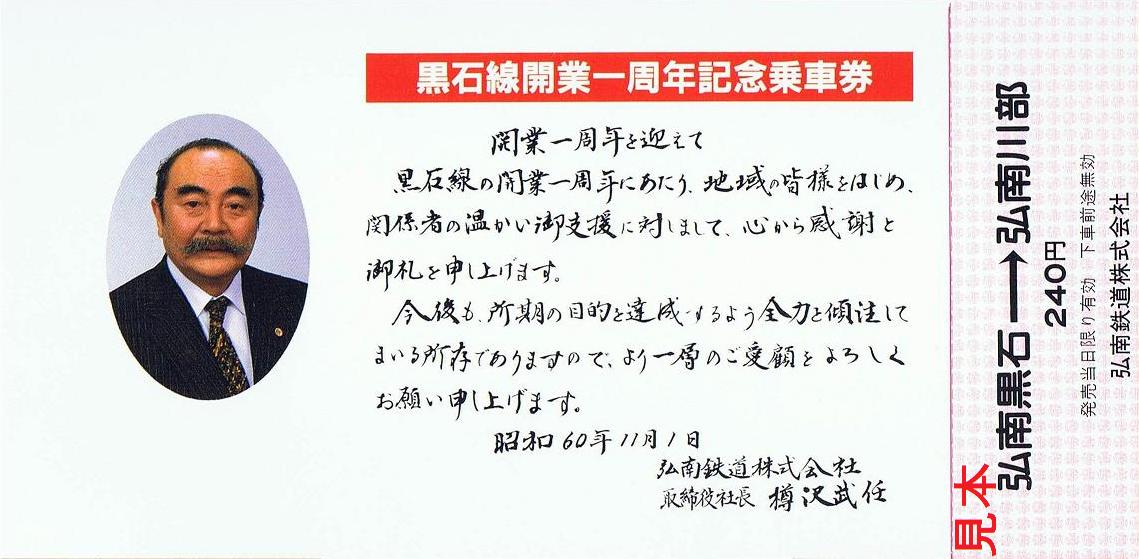 黒石線開業一周年記念乗車券
開業一周年を迎えて
黒石線の開業一周年にあたり、地域の皆様をはじめ、
関係者の温かい御支援に対しまして、心から感謝と
御礼を申し上げます。
今後も、所期の目的を達成するよう全力を傾注して
まいる所存でありますので、より一層のご愛顧をよろしく
お願い申し上げます。
昭和60年11月1日
弘南鉄道株式会社
取締役社長 樽沢武任
弘南黒石→弘南川部
240円
発売当日限り有効 下車前途無効
弘南鉄道株式会社
見本